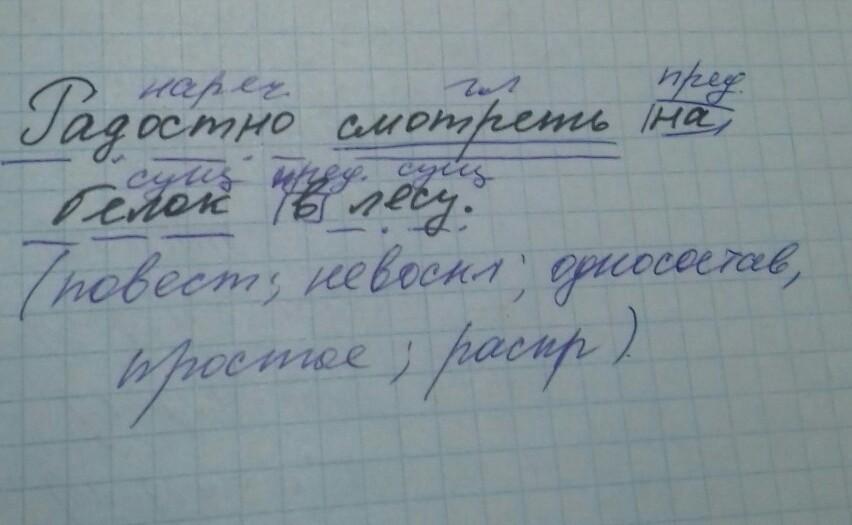 нареч. гл пред.
Радостно смотреть на
сущ пред. сущ
белок в лесу.
(повест; невоскл; односостав,
простое; распр)